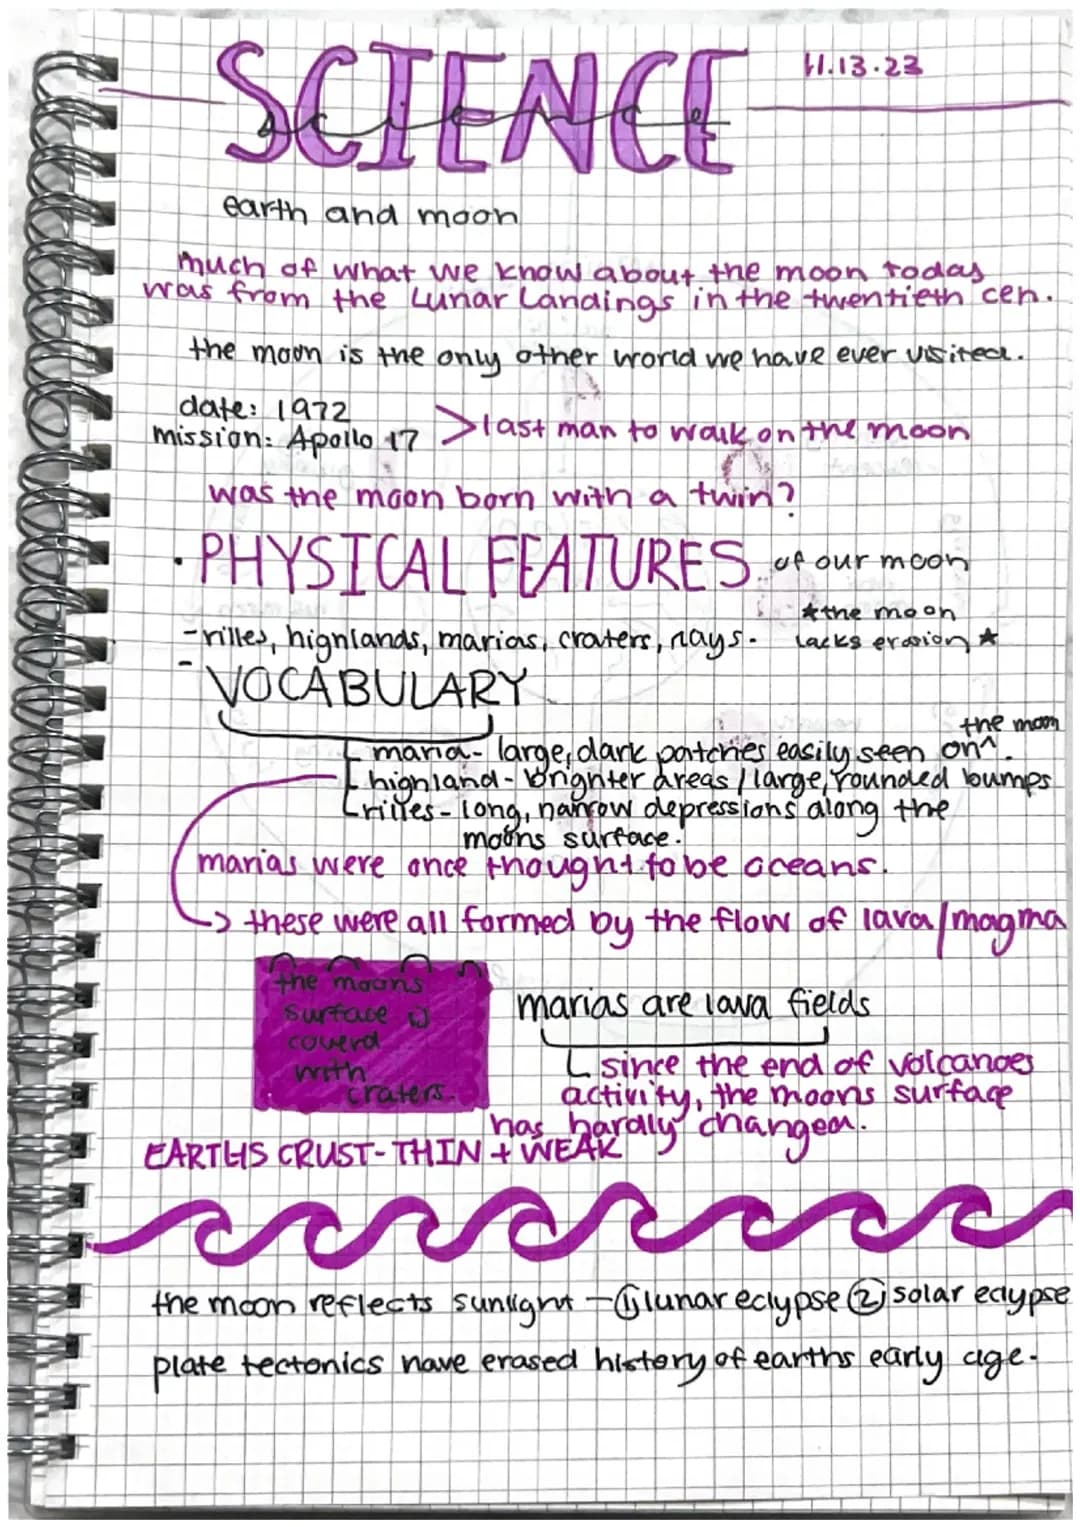 SCIENCE
science
11.13.23
earth and moon
much of what we know about the moon today
was from the Lunar Landings in the twentieth cen.
the moon is the only other world we have ever visited.
date: 1972
mission: Apollo 17
> last man to walk on the moon
was the moon born with a twin?
• PHYSICAL FEATURES of our moon
- rilles, highlands, marias, craters, rays.
★the moon
lacks erosion ★
- VOCABULARY
the moon
maria - large, dark patches easily seen on^.
highland - brighter areas / large, rounded bumps
rilles - long, narrow depressions along the
moons surface.
marias were once thought to be oceans.
→ these were all formed by the flow of lava/magma
the moons
surface is
coverd
with
craters.
marias are lava fields
since the end of volcanoes
activity, the moons surface
has hardly changed.
EARTHS CRUST - THIN + WEAK
the moon reflects sunlight - ① lunar eclypse ② solar eclypse
plate tectonics have erased history of earths early age.